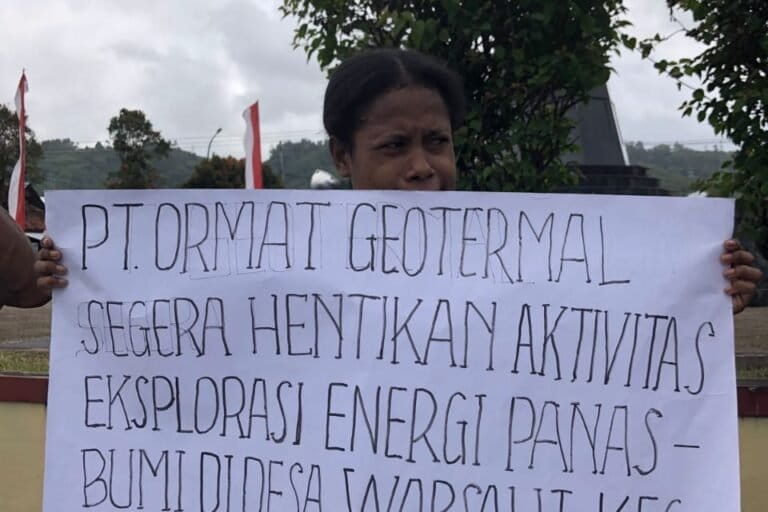 PT. ORMAT GEOTERMAL
SEGERA HENTIKAN AKTIVITAS
EKSPLORASI ENERGI PANAS-
BUMI DI DESA